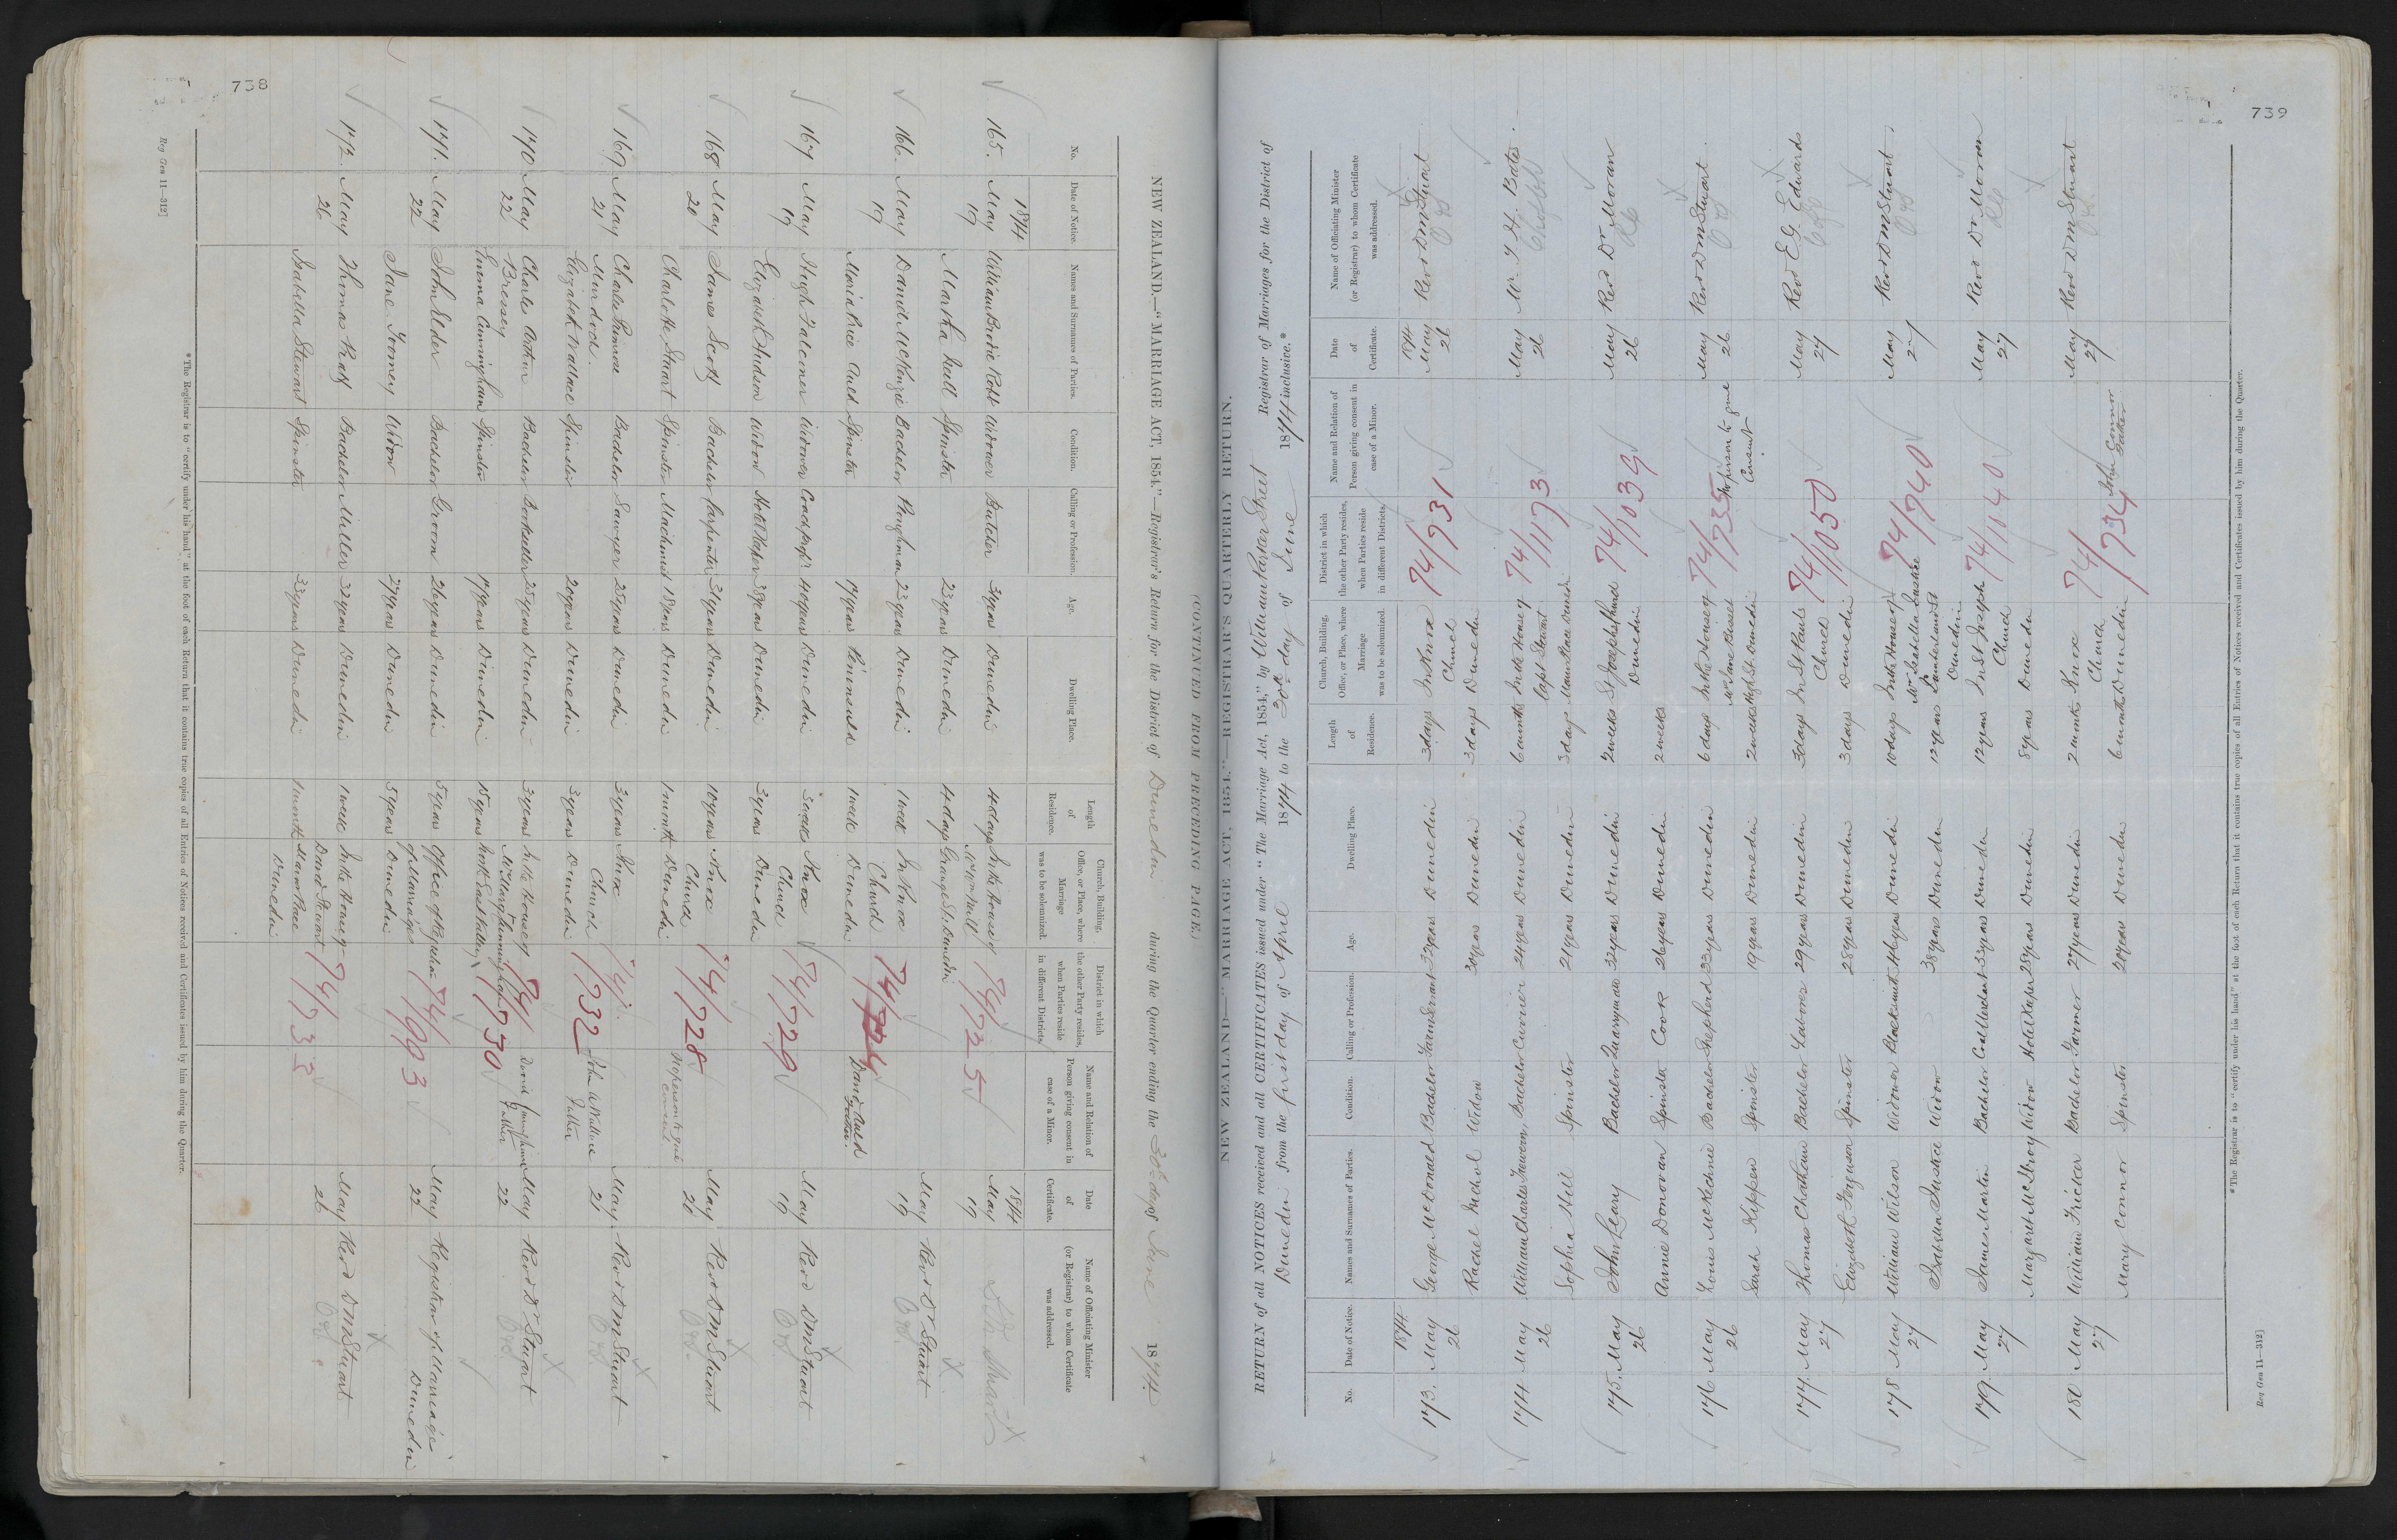 738
NEW ZEALAND.—"MARRIAGE ACT, 1854."—Registrar's Return for the District of Dunedin during the Quarter ending the 30th day of June 1874
No. Date of Notice. Names and Surnames of Parties. Condition. Calling or Profession. Age. Dwelling Place. Length of Residence. Church, Building, Office, or Place, where Marriage was to be solemnized. District in which the other Party resides, when Parties reside in different Districts. Name and Relation of Person giving consent in case of a Minor. Date of Certificate. Name of Officiating Minister (or Registrar) to whom Certificate was addressed.
1874 1874
165. May 19 William Brodie Robb Widower Butcher Dunedin 4 days In the House of 74/725 May 19
Martha Null Spinster 23 years Dunedin 4 days Grange St. Dunedin
166. May 19 Daniel McKenzie Bachelor Ploughman 23 years Dunedin 1 week In Knox Church May 19 Revd Dr Stuart
Maria Price Auld Spinster 17 years 1 week Dunedin David Auld
167 May 19 Hugh Falconer Widower 40 years Dunedin 3 weeks Knox Church 74/729 May 19 Revd DM Stuart
Elizabeth Hudson Widow Hotel Keeper 38 years Dunedin 3 years Dunedin
168 May 20 James Scott Bachelor Carpenter 31 years Dunedin 10 years Knox Church 74/728 May 20 Revd DM Stuart
Charlotte Stuart Spinster Machinist 18 years Dunedin 1 month Dunedin No person to give consent
169 May 21 Charles Primrose Murdoch Bachelor Sawyer 25 years Dunedin 3 years Knox Church 74/732 May 21 Revd DM Stuart
Elizabeth Wallace Spinster 20 years Dunedin 3 years Dunedin John Wallace Father
170 May 22 Charles Arthur Bressey Bachelor Bookseller 25 years Dunedin 3 years In the House of 74/730 May 22 Revd Dr Stuart
Emma Cunningham Spinster 17 years Dunedin 15 years North East Valley David Cunningham Father
171. May 22 John Elder Bachelor Groom 26 years Dunedin 5 years Office of Registrar of Marriages 74/993 May 22 Registrar of Marriages Dunedin
Jane Toomey Widow 27 years Dunedin 5 years Dunedin
172. May 26 Thomas Ralf Bachelor Miller 32 years Dunedin 1 week In the House of David Stewart 74/733 May 26 Revd DM Stuart
Isabella Stewart Spinster 23 years Dunedin 1 month Dunedin
* The Registrar is to "certify under his hand" at the foot of each Return that it contains true copies of all Entries of Notices received and Certificates issued by him during the Quarter.
Reg Gen 11—312]
739
(CONTINUED FROM PRECEDING PAGE.)
NEW ZEALAND—"MARRIAGE ACT, 1854."—REGISTRAR'S QUARTERLY RETURN.
RETURN of all NOTICES received and all CERTIFICATES issued under "The Marriage Act, 1854," by William Parker Street Registrar of Marriages for the District of
Dunedin from the first day of April 1874 to the 30th day of June 1874 inclusive.*
No. Date of Notice. Names and Surnames of Parties. Condition. Calling or Profession. Age. Dwelling Place. Length of Residence. Church, Building, Office, or Place, where Marriage was to be solemnized. District in which the other Party resides, when Parties reside in different Districts. Name and Relation of Person giving consent in case of a Minor. Date of Certificate. Name of Officiating Minister (or Registrar) to whom Certificate was addressed.
1874 1874
173. May 26 George McDonald Bachelor Farm Servant 32 years Dunedin 3 days In Knox Church 74/731 May 26 Revd DM Stuart
Rachel Nichol Widow 30 years Dunedin 3 days Dunedin
174. May 26 William Charles Bachelor Currier 24 years Dunedin 6 months In the House of Capt Stewart 74/1173 May 26 Mr. J. H. Bates
Sophia Hill Spinster 21 years Dunedin 3 days
175. May 26 John Leary Bachelor Quarryman 32 years Dunedin 2 weeks St Josephs Church Dunedin 74/1039 May 26 Revd Dr Moran
Annie Donovan Spinster Cook 26 years Dunedin 2 weeks
176 May 26 Louis McKechnie Bachelor Shepherd 33 years Dunedin 6 days In the House of 74/735 No person to give consent May 26 Revd DM Stuart
Sarah Kippen Spinster 19 years Dunedin 2 weeks High St Dunedin
177. May 27 Thomas Chatham Bachelor Labourer 29 years Dunedin 3 days In St Pauls Church 74/1050 May 27 Revd E.G. Edwards
Elizabeth Ferguson Spinster 28 years Dunedin 3 days Dunedin
178 May 27 William Wilson Widower Blacksmith 44 years Dunedin 10 days In the House of Mrs Isabella Justice 74/740 May 27 Revd DM Stuart
Isabella Justice Widow 38 years Dunedin 12 years Dunedin
179. May 27 James Martin Bachelor 33 years Dunedin 12 years In St Joseph Church 74/1040 May 27 Revd Dr Moran
Margaret McIlroy Widow Hotel Keeper 25 years Dunedin 8 years Dunedin
180 May 27 William Fricker Bachelor Farmer 27 years Dunedin 2 months Knox Church 74/734 John Connor Father May 27 Revd DM Stuart
Mary Connor Spinster 20 years Dunedin 6 months Dunedin
* The Registrar is to "certify under his hand" at the foot of each Return that it contains true copies of all Entries of Notices received and Certificates issued by him during the Quarter.
Reg Gen 11—312]